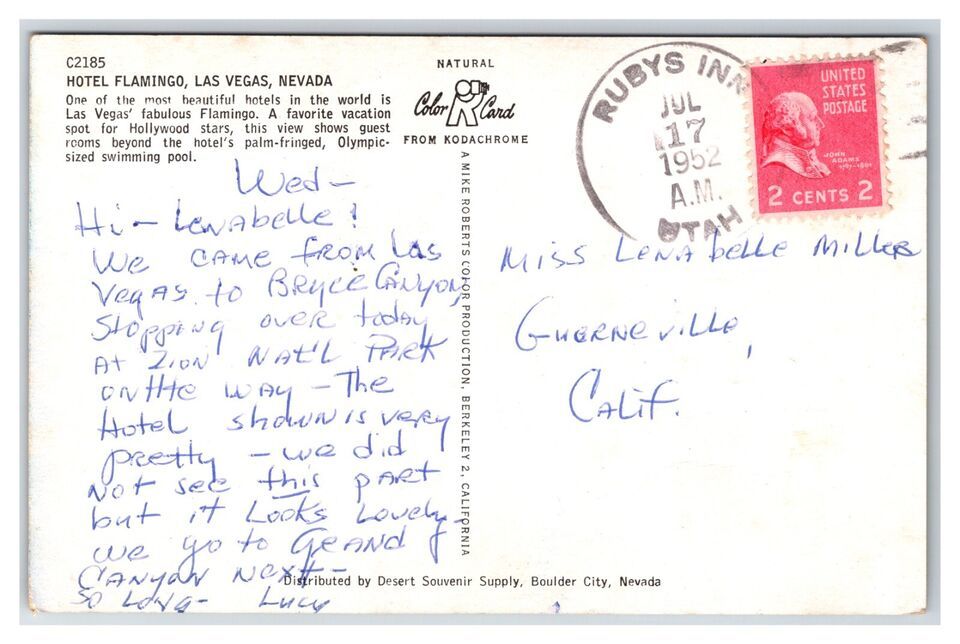 C2185
HOTEL FLAMINGO, LAS VEGAS, NEVADA
One of the most beautiful hotels in the world is
Las Vegas' fabulous Flamingo. A favorite vacation
spot for Hollywood stars, this view shows guest
rooms beyond the hotel's palm-fringed, Olympic-
sized swimming pool.
NATURAL
Color Card
FROM KODACHROME
A MIKE ROBERTS COLOR PRODUCTION, BERKELEY 2, CALIFORNIA
RUBYS INN
JUL
17
1952
A.M.
UTAH
UNITED
STATES
POSTAGE
JOHN
ADAMS
1797-1801
2 CENTS 2
Wed-
Hi - Lenabelle!
We came from Las
Vegas to Bryce Canyon,
stopping over today
at Zion Nat'l Park
on the way - The
Hotel shown is very
pretty - we did
not see this part
but it looks lovely -
we go to Grand
Canyon next -
So Long - Lucy
Miss Lenabelle Miller
Guerneville,
Calif.
Distributed by Desert Souvenir Supply, Boulder City, Nevada